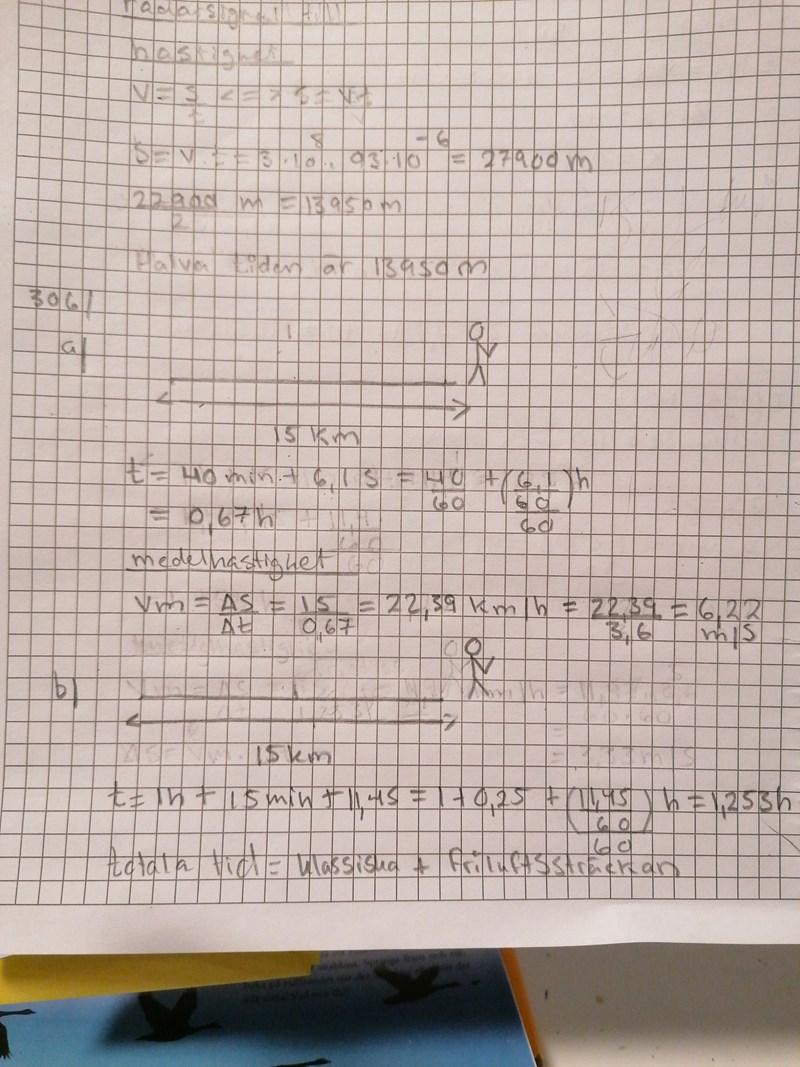 radarsignal till
hastighet
V = s/t <=> s = vt
S = v·t = 3·10^8 · 93·10^-6 = 27900 m
27900/2 m = 13950 m
Halva tiden är 13950 m
306/
a/
15 km
t = 40 min + 6,1 s = 40/60 + (6,1/60/60) h
= 0,67 h
medelhastighet
Vm = ΔS/Δt = 15/0,67 = 22,39 km/h = 22,39/3,6 = 6,22 m/s
b/
15 km
t = 1h + 15 min + 11,4 s = 1 + 0,25 + (11,45/60/60) h = 1,253h
totala tid = klassiska + friluftssträckan